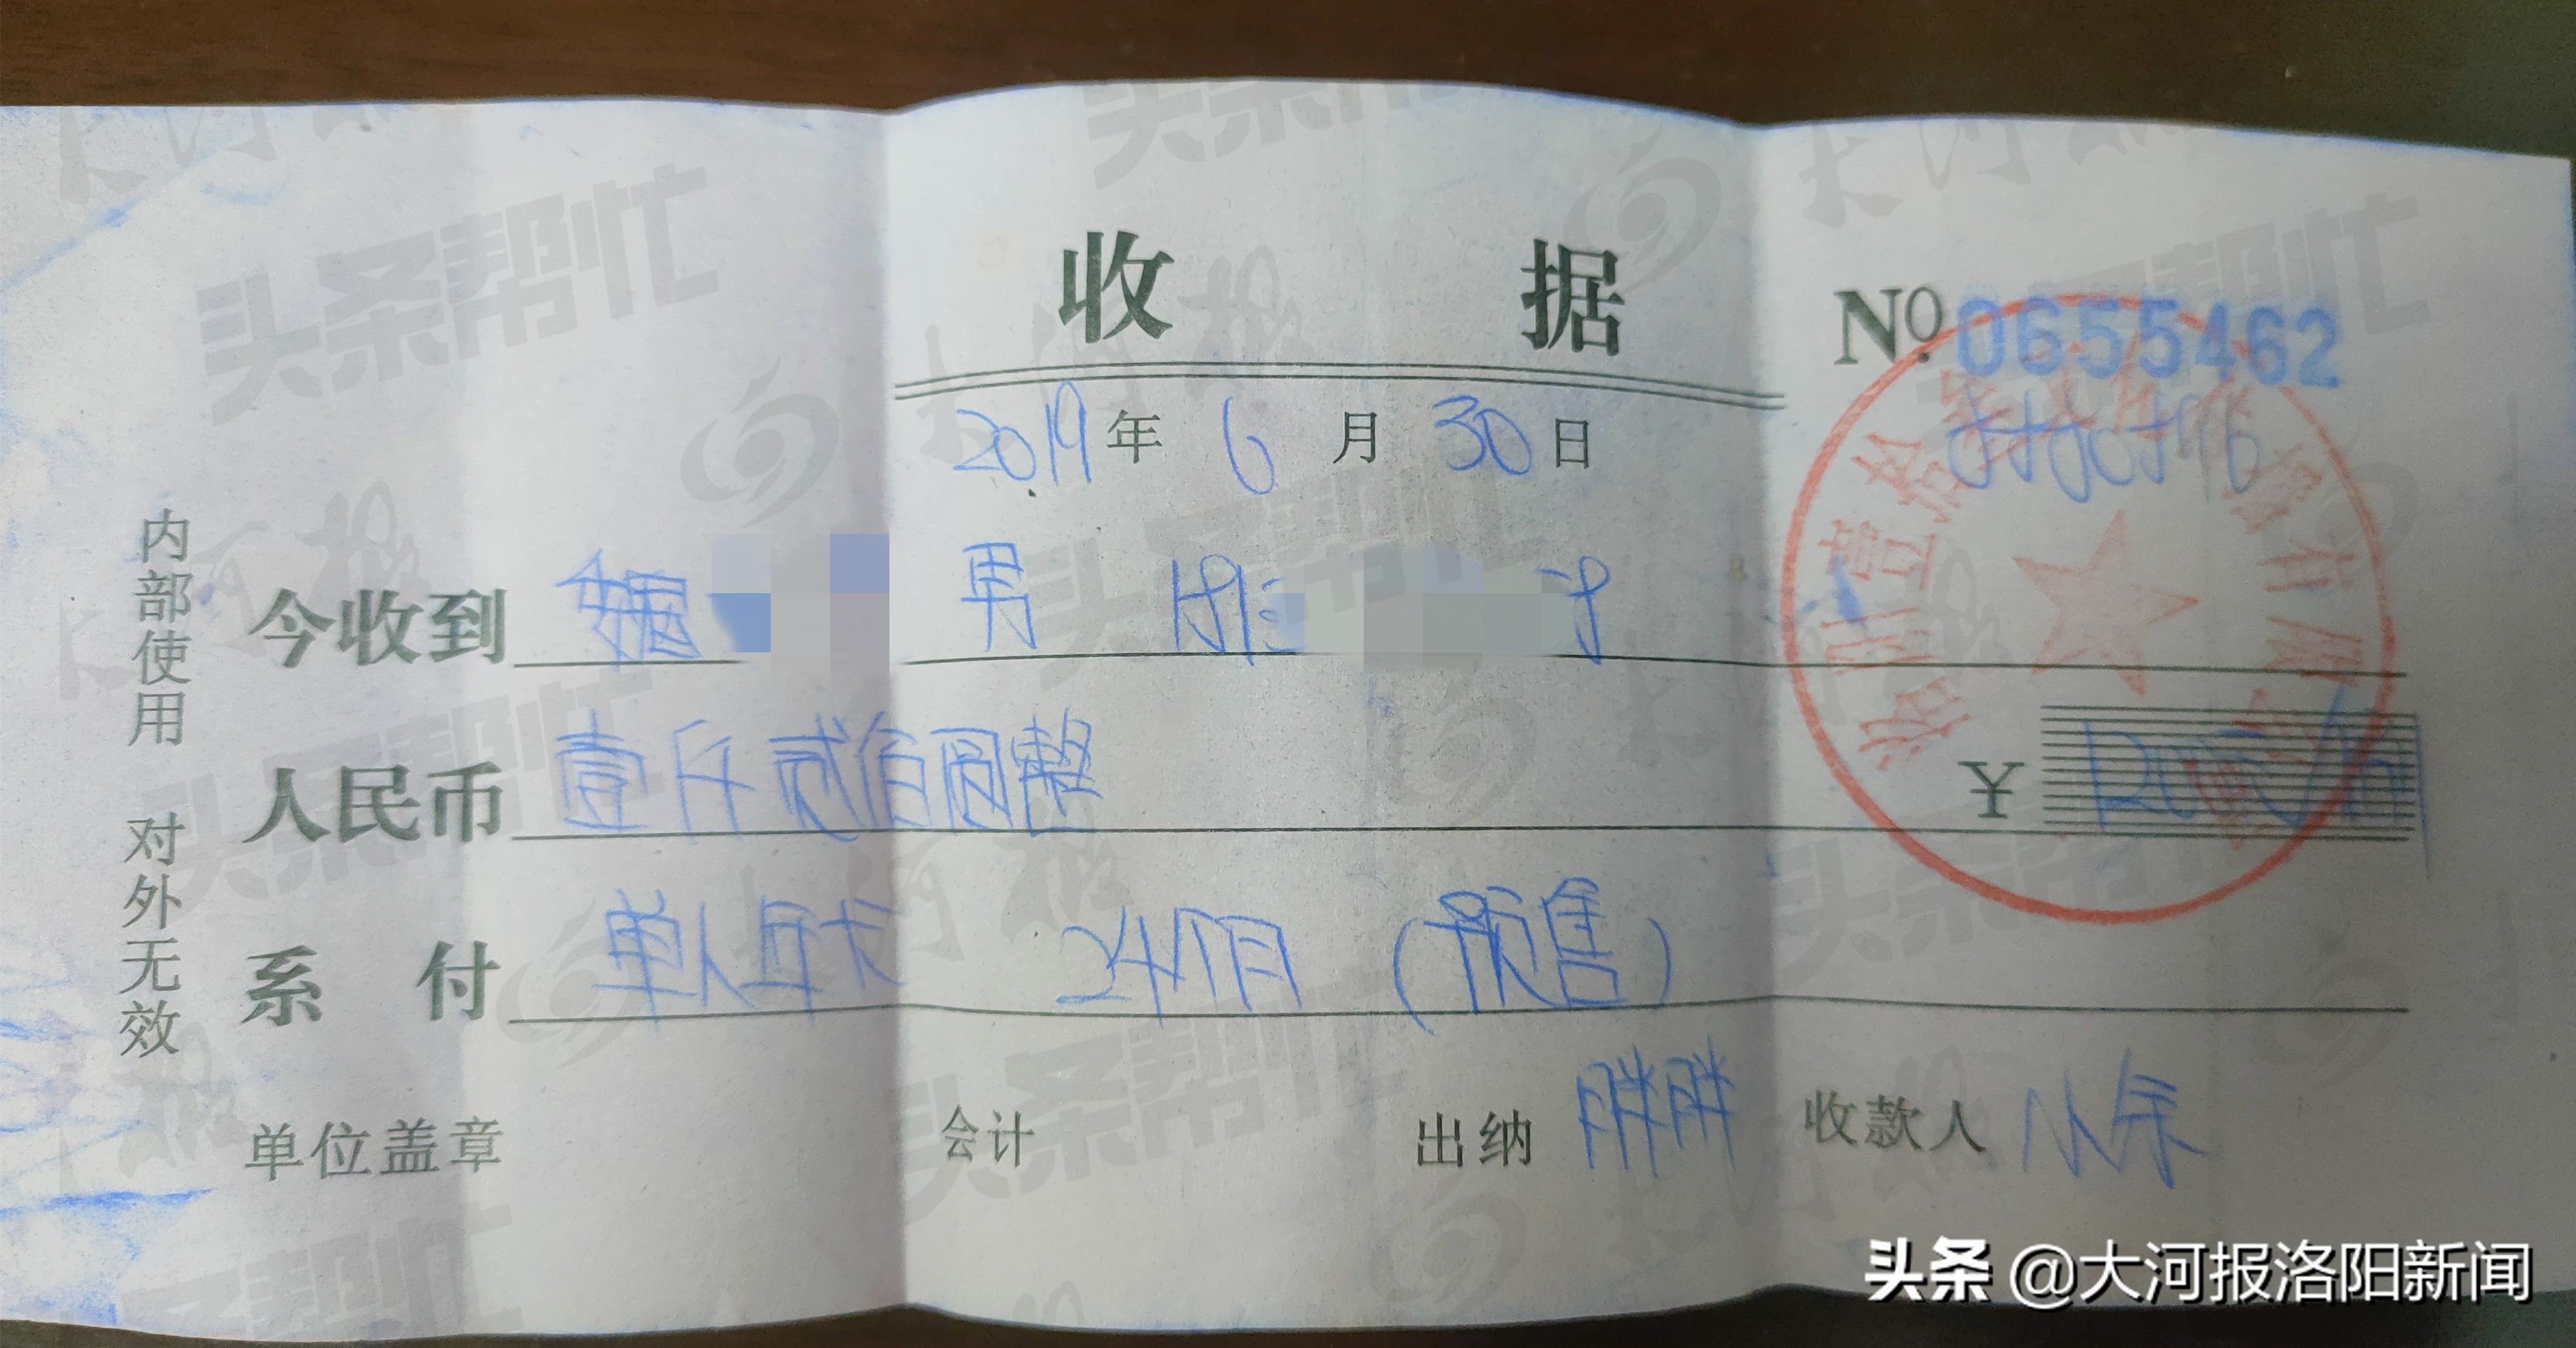 收 据
No. 0655462
2019年 6月 30日
今收到 魏 男
人民币 壹仟贰佰圆整 ¥
系 付 单人年卡 24个月 (预售)
单位盖章 会计 出纳 胖胖 收款人 小余
内部使用 对外无效
头条帮忙
大河报
头条 @大河报洛阳新闻